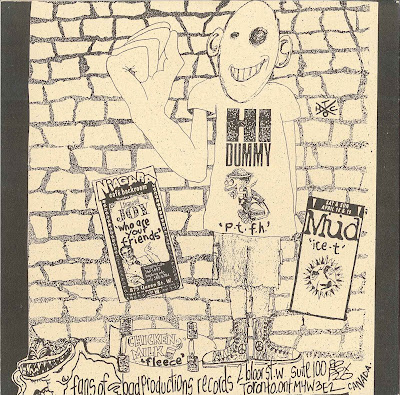 HI
DUMMY
'p.t.f.h.'
NIAGARA
café backroom
JOY
'who are
your
friends'
SAT & SUN
Mud
'ice-t'
CHICKEN
MILK
'fleece'
fans of bad productions records 2 bloor st. w suite 100
Toronto. ont M4W 3E2
CANADA